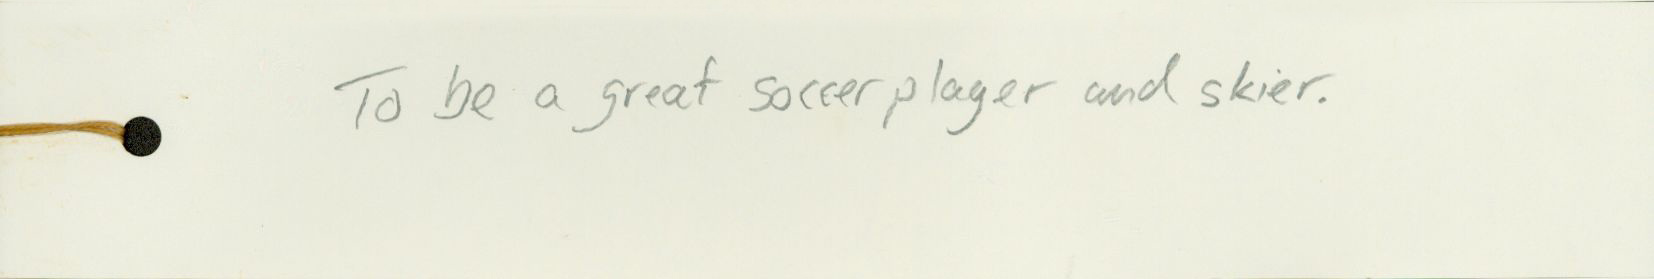 To be a great soccer player and skier.